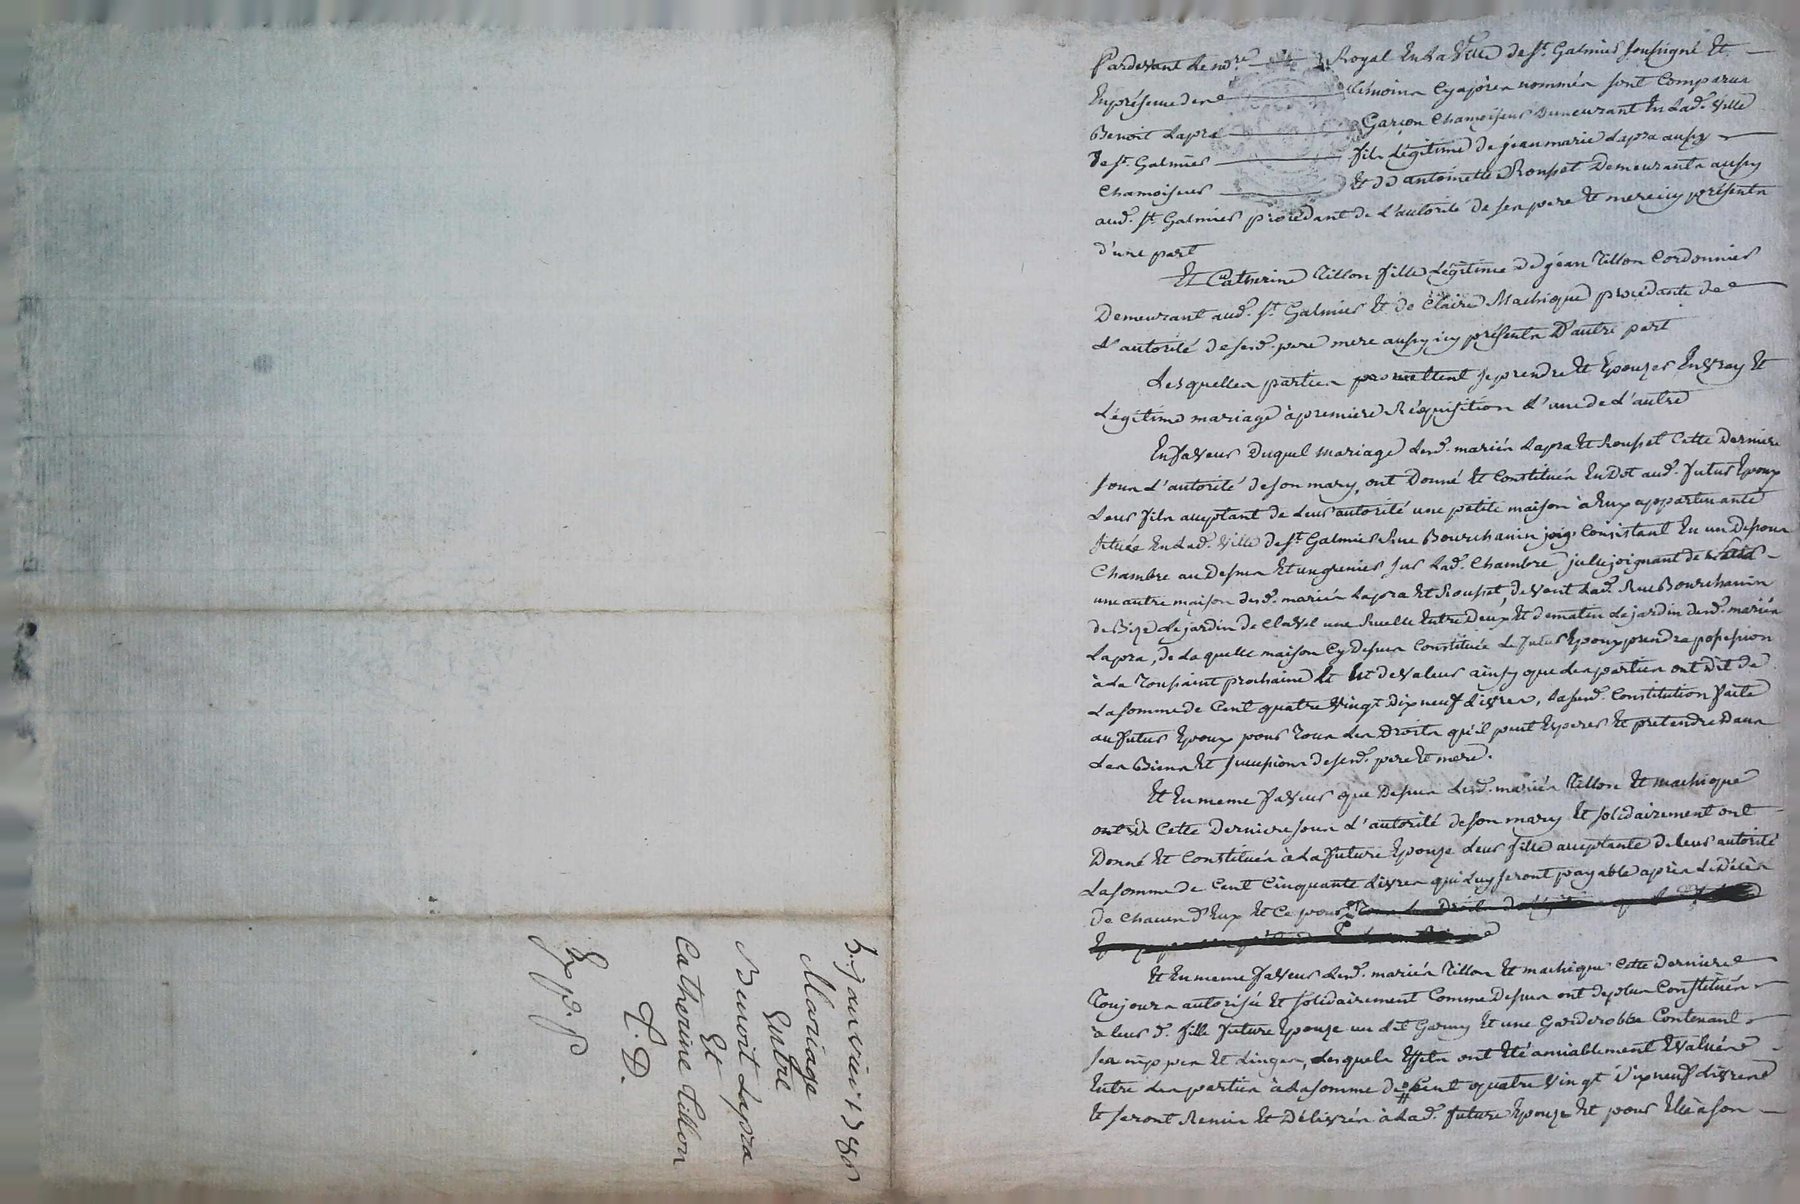 Pardevant le no.re Royal En la Ville de S.t Galmier soussigné Et
En présence des témoins Cy après nommés sont Comparus
Benoit Lapra Garçon Chamoiseur Demeurant En lad. Ville
de S.t Galmier fils légitime de jean marie Lapra aussy
Chamoiseur Et de antoinette Rousset Demeurants aussy
aud. S.t Galmier procédant de L'autorité de ses pere Et mere icy présents
d'une part
Et Catherine Tillon fille Légitime de jean Tillon Cordonnier
Demeurant aud. S.t Galmier Et de Claire Machique procédante de
L'autorité de sesd. pere mere aussy icy présents D'autre part
Lesquelles parties promettent se prendre Et Epouzer En vray Et
Légitime mariage à premiere Réquisition L'une de L'autre
En faveur Duquel mariage Lesd. mariés Lapra Et Rousset Cette Derniere
sous L'autorité de son mary, ont Donné Et Constitués En Dot aud. futur Epoux
Leur fils acceptant de Leur autorité une petite maison à Eux appartenante
située En Lad. Ville de S.t Galmier Rue Bourchanin joig. Consistant En un Dessous
Chambre au Dessus Et un grenier sur Lad. Chambre joignant de
une autre maison desd. mariés Lapra Et Rousset, de vent Lad. Rue Bourchanin
de Bize Le jardin de Clavel une Ruelle Entre Deux Et de matin Le jardin desd. mariés
Lapra, de Laquelle maison Cy Dessus Constituée Le futur Epoux prendra possession
à La Toussaint prochaine Et Est de Valeur ainsy que Les parties ont Dit de
La somme de Cent quatre Vingt Dix neuf Livres, Constitution faite
au futur Epoux pour Tous Les Droits qu'il peut Esperer Et pretendre Dans
Les Biens Et successions de sesd. pere Et mere.
Et En meme faveur que Dessus Lesd. mariés Tillon Et machique
Cette Derniere sous L'autorité de son mary Et solidairement ont
Donné Et Constitués à La future Epouze Leur fille acceptante de Leur autorité
La somme de Cent Cinquante Livres qui Luy seront payable après Le Décès
de Chacun d'Eux Et Ce pour
Et En meme faveur Lesd. mariés Tillon Et machique Cette Derniere
Toujours autorisée Et solidairement Comme Dessus ont de plus Constitués
à Leur d. fille future Epouze un Lit Garny Et une Garderobbe Contenant
ses nippes Et Linges, Lesquels Effets ont Eté amiablement Evalués
Entre Les parties à La somme de Cent quatre Vingt Dix neuf Livres
Et seront Remis Et Délivrés à Lad. future Epouze Et pour Elle à son
5. janvier 1786
Mariage
Entre
Benoit Lapra
Et
Catherine Tillon
C. D.